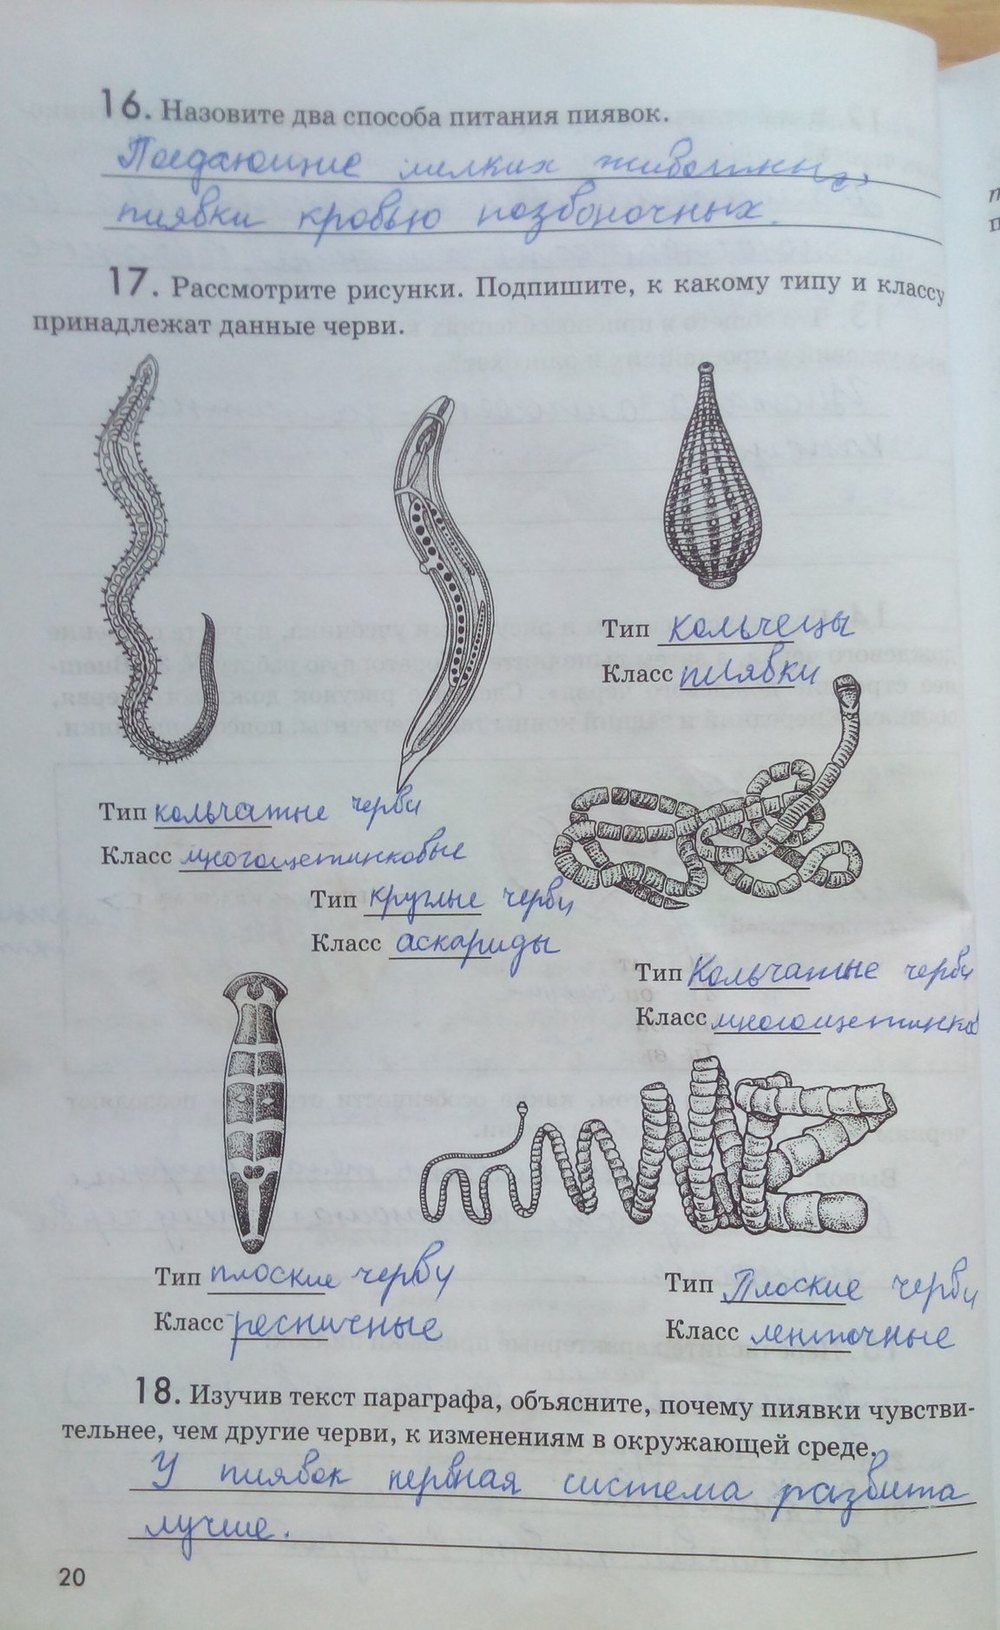 16. Назовите два способа питания пиявок.
Поедающие мелких животных,
пиявки кровью позвоночных.
17. Рассмотрите рисунки. Подпишите, к какому типу и классу
принадлежат данные черви.
Тип кольчецы
Класс пиявки
Тип кольчатые черви
Класс многощетинковые
Тип круглые черви
Класс аскариды
Тип Кольчатые черви
Класс многощетинков
Тип плоские черви
Класс ресничные
Тип Плоские черви
Класс ленточные
18. Изучив текст параграфа, объясните, почему пиявки чувстви-
тельнее, чем другие черви, к изменениям в окружающей среде.
У пиявок нервная система развита
лучше.
20